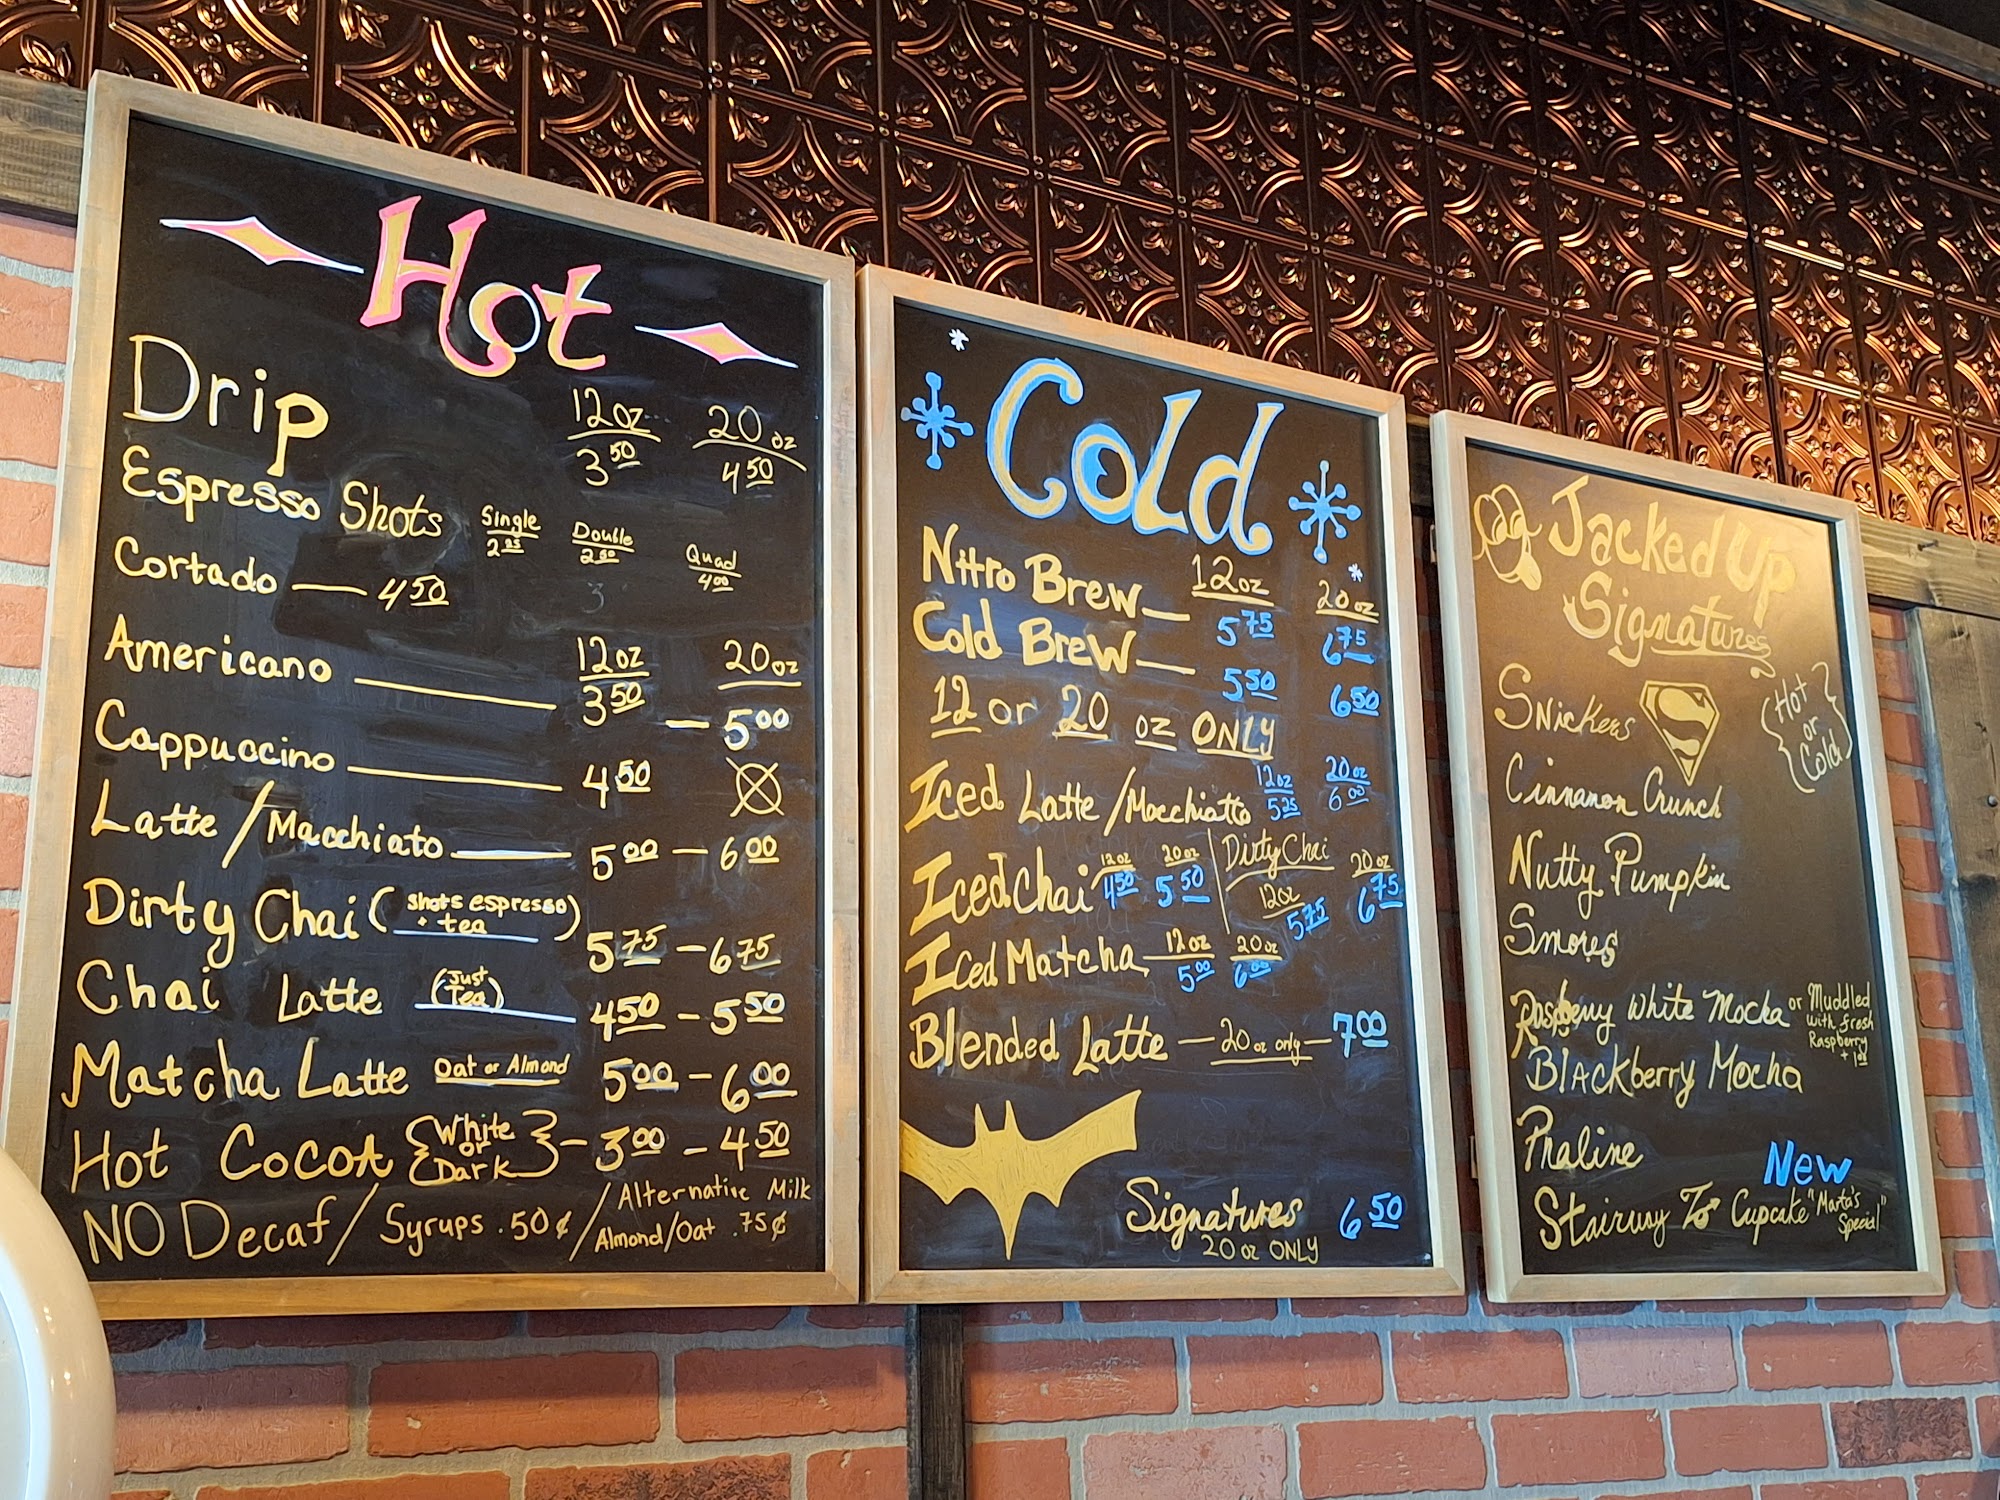 Hot
Drip 12oz 20oz
3 50 4 50
Espresso Shots Single Double Quad
2 25 2 50 4 00
Cortado — 4 50
Americano 12oz 20oz
3 50 — 5 00
Cappuccino 4 50
Latte / Macchiato 5 00 — 6 00
Dirty Chai (shots espresso + tea) 5 75 — 6 75
Chai Latte (Just Tea) 4 50 — 5 50
Matcha Latte Oat or Almond 5 00 — 6 00
Hot CocoA {White or Dark} — 3 00 — 4 50
NO Decaf / Syrups .50¢ / Alternative Milk
Almond/Oat .75¢
Cold
Nitro Brew — 12oz 20oz
5 75 6 75
Cold Brew — 5 50 6 50
12 or 20 oz ONLY
Iced Latte / Macchiatto 12oz 20oz
5 25 6 00
Iced Chai 12oz 20oz
4 50 5 50
Dirty Chai
12oz 20oz
5 75 6 75
Iced Matcha 12oz 20oz
5 00 6 00
Blended Latte — 20 oz only — 7 00
Signatures 6 50
20 oz ONLY
Jacked Up
Signatures
Snickers S
{Hot or Cold}
Cinnamon Crunch
Nutty Pumpkin
Smores
Raspberry White Mocka or Muddled
with fresh
Raspberry
+ 1 00
BlAckberry Mocha
Praline
New
Stairway To Cupcake "Marta's Special"